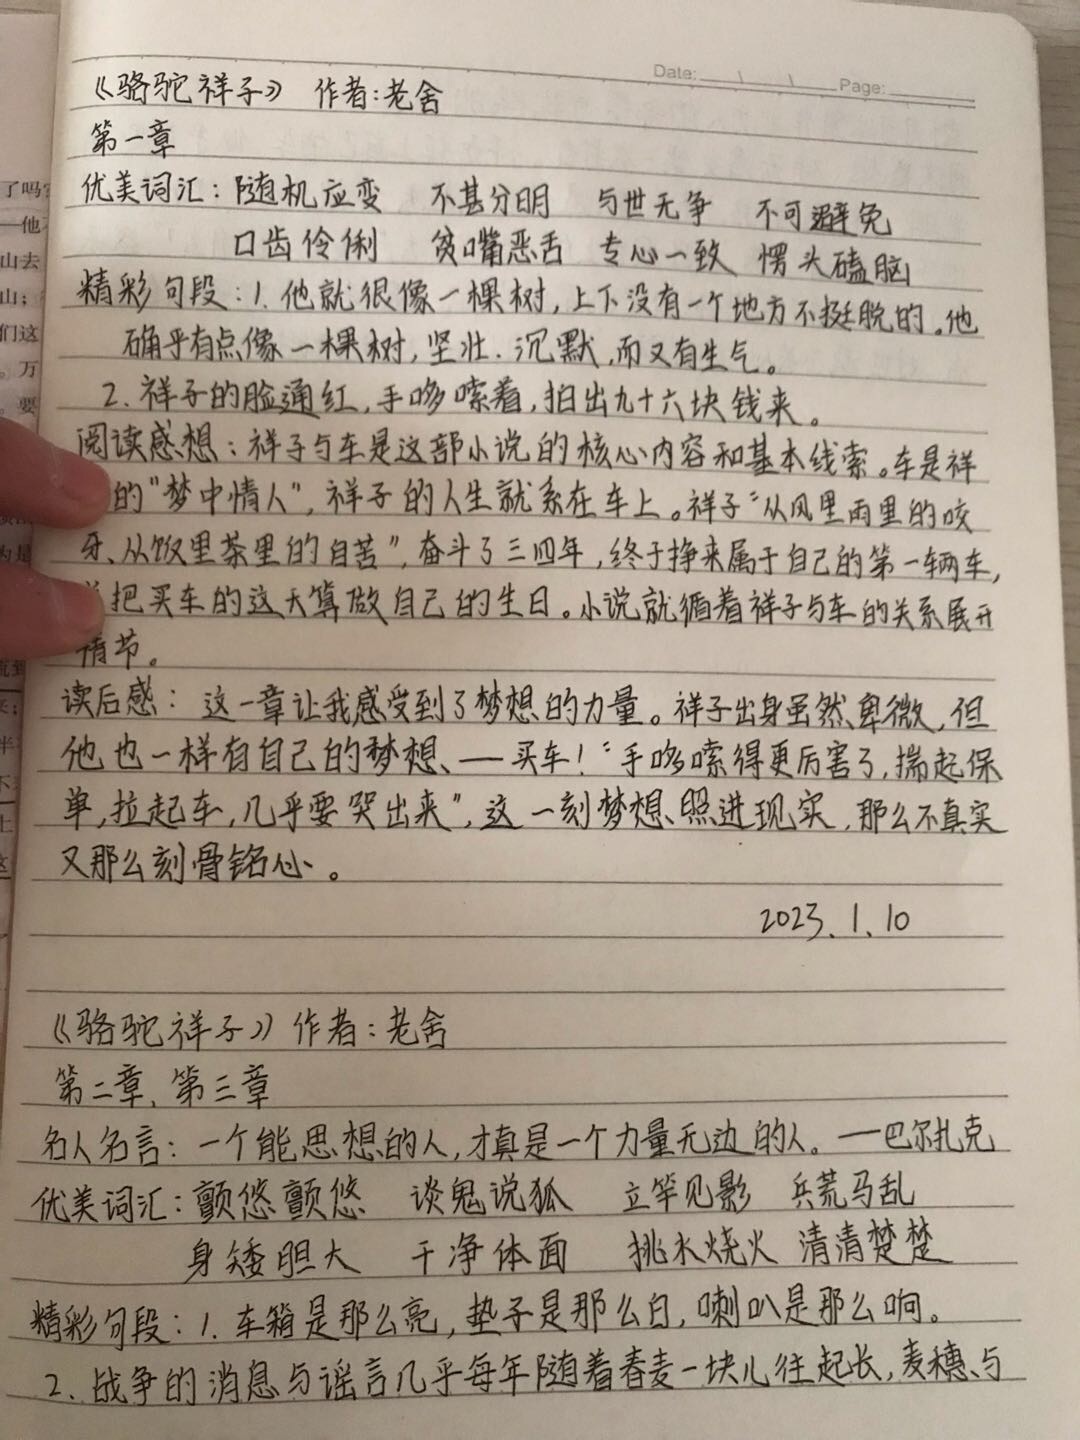 Date: \ \ Page:
《骆驼祥子》 作者:老舍
第一章
优美词汇:随机应变 不甚分明 与世无争 不可避免
口齿伶俐 贫嘴恶舌 专心一致 愣头磕脑
精彩句段:1.他就很像一棵树,上下没有一个地方不挺脱的。他
确乎有点像一棵树,坚壮.沉默,而又有生气。
2.祥子的脸通红,手哆嗦着,拍出九十六块钱来。
阅读感想:祥子与车是这部小说的核心内容和基本线索。车是祥
的"梦中情人",祥子的人生就系在车上。祥子"从风里雨里的咬
牙、从饭里茶里的自苦",奋斗了三四年,终于挣来属于自己的第一辆车,
把买车的这天算做自己的生日。小说就循着祥子与车的关系展开
情节。
读后感:这一章让我感受到了梦想的力量。祥子出身虽然卑微,但
他也一样有自己的梦想、——买车!"手哆嗦得更厉害了,揣起保
单,拉起车,几乎要哭出来",这一刻梦想照进现实,那么不真实
又那么刻骨铭心。
2023.1.10
《骆驼祥子》作者:老舍
第二章、第三章
名人名言:一个能思想的人,才真是一个力量无边的人。——巴尔扎克
优美词汇:颤悠颤悠 谈鬼说狐 立竿见影 兵荒马乱
身矮胆大 干净体面 挑水烧火 清清楚楚
精彩句段:1.车箱是那么亮,垫子是那么白,喇叭是那么响。
2.战争的消息与谣言几乎每年随着春麦一块儿往起长,麦穗与
了吗?
一他
山去
山;
们这
。万
。要